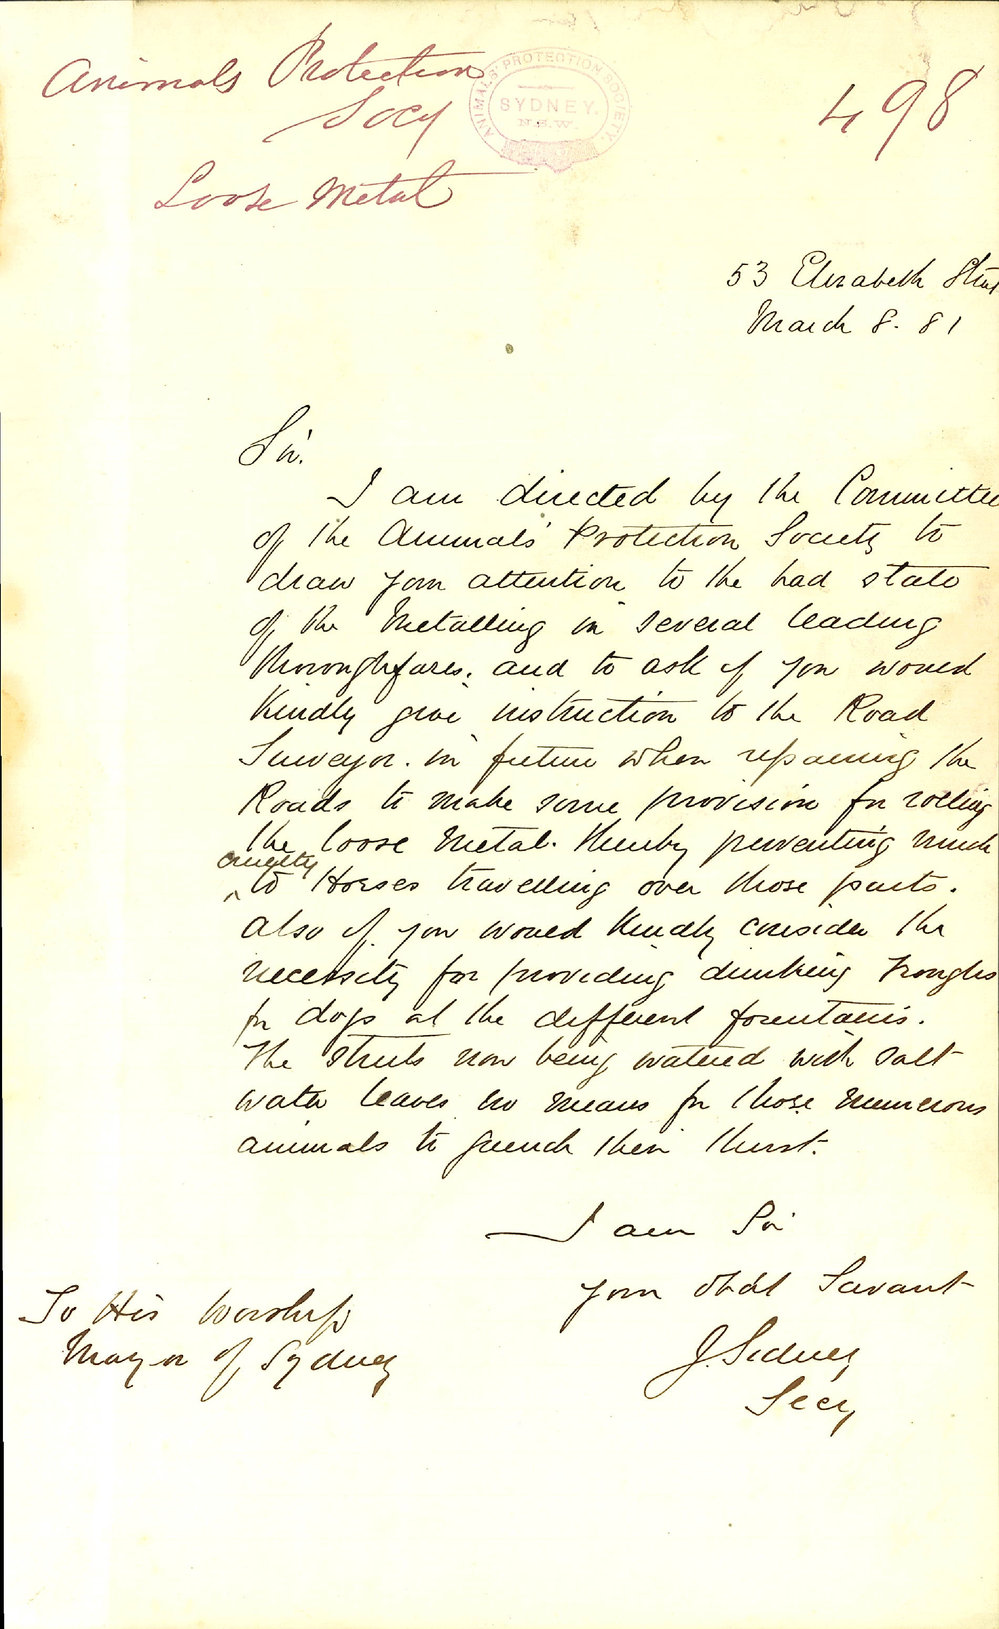 Animals Protection
Socy
ANIMALS' PROTECTION SOCIETY.
SYDNEY.
N.S.W.
498
Loose Metal
53 Elizabeth Street
March 8. 81
Sir.
I am directed by the Committee
of the Animals' Protection Society to
draw your attention to the bad state
of the Metalling in several leading
thoroughfares. and to ask if you would
Kindly give instruction to the Road
Surveyor. in future when repairing the
Roads to make some provision for rolling
the loose metal. thereby preventing much
cruelty
^ to Horses travelling over those parts.
also if you would kindly consider the
necessity for providing drinking troughs
for dogs at the different fountains.
The streets now being watered with salt
water leaves no means for those numerous
animals to quench their thirst.
I am Sir
your obdt Servant
J. Sidney
Secy
To His Worship
Mayor of Sydney